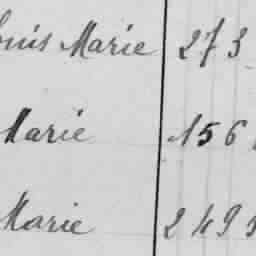 ouis Marie 273
Marie 156
Marie 249